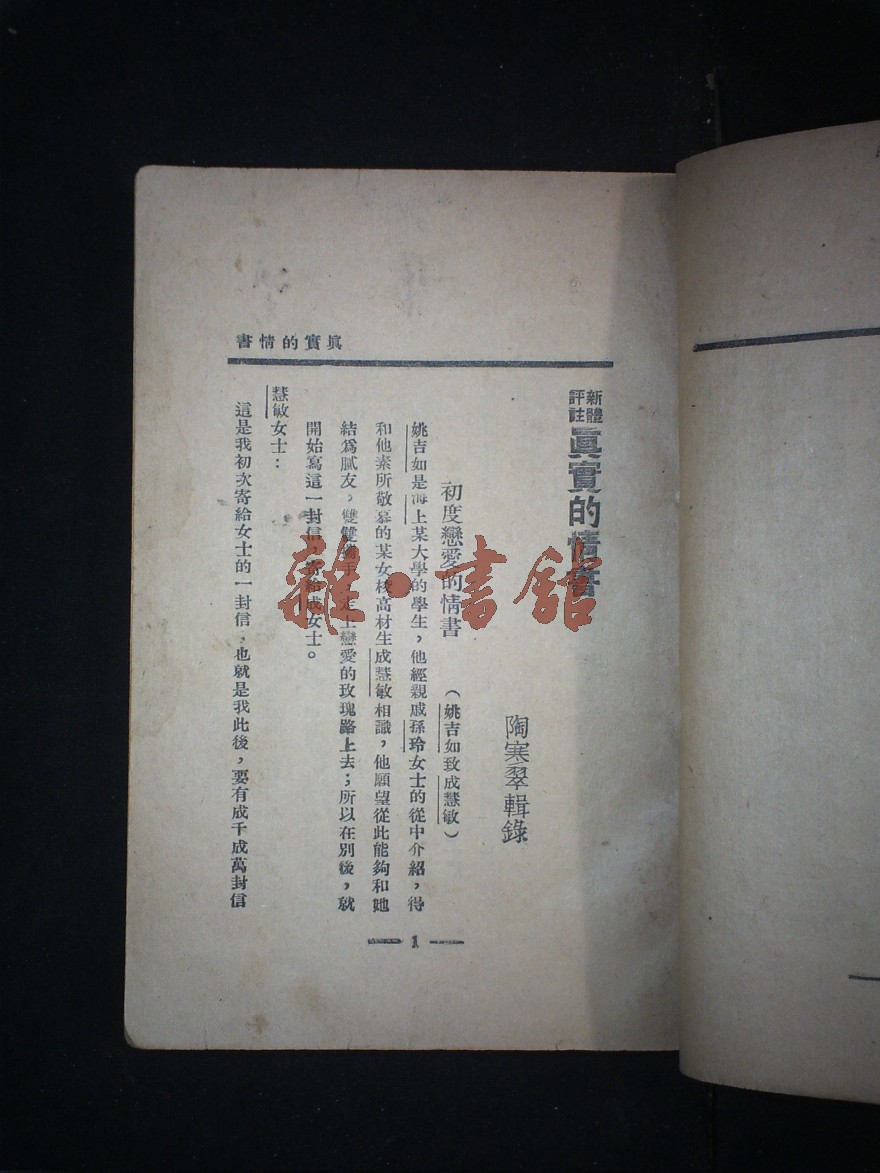 眞實的情書
新體
評註
眞實的情書
陶寒翠輯錄
初度戀愛的情書 （姚吉如致成慧敏）
姚吉如是海上某大學的學生，他經親戚孫玲女士的從中介紹，得
和他素所敬慕的某女校高材生成慧敏相識，他願望從此能夠和她
結爲膩友，雙雙攜手，走上戀愛的玫瑰路上去；所以在別後，就
開始寫這一封信，寄給成女士。
慧敏女士：
這是我初次寄給女士的一封信，也就是我此後，要有成千成萬封信
1
雜·書館